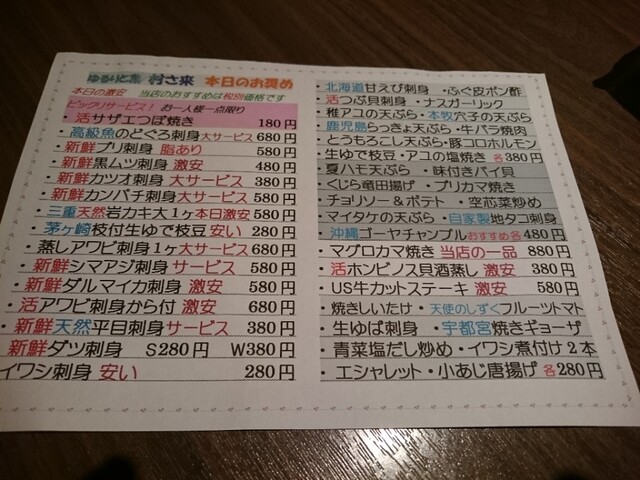 ゆるり亭 村さ来 本日のお奨め
本日の激安 当店のおすすめは税別価格です
ビックリサービス! お一人様一点限り
・活サザエつぼ焼き 180円
・高級魚のどぐろ刺身大サービス680円
・新鮮ブリ刺身 脂あり 580円
・新鮮黒ムツ刺身 激安 480円
・新鮮カツオ刺身 大サービス 380円
・新鮮カンパチ刺身大サービス580円
・三重天然岩カキ大1ヶ本日激安580円
・茅ヶ崎枝付生ゆで枝豆 安い 280円
・蒸しアワビ刺身1ヶ大サービス680円
・新鮮シマアジ刺身 サービス 580円
・新鮮ダルマイカ刺身 激安 580円
・活アワビ刺身から付 激安 680円
・新鮮天然平目刺身サービス 380円
新鮮ダツ刺身 S280円 W380円
イワシ刺身 安い 280円
・北海道甘えび刺身 ・ふぐ皮ポン酢
・活つぶ貝刺身 ・ナスガーリック
稚アユの天ぷら・本牧穴子の天ぷら
・鹿児島らっきょ天ぷら・牛バラ焼肉
・とうもろこし天ぷら・豚コロホルモン
・生ゆで枝豆・アユの塩焼き各380円
・夏ハモ天ぷら ・味付きバイ貝
・くじら竜田揚げ ・ブリカマ焼き
・チョリソー&ポテト ・空芯菜炒め
・マイタケの天ぷら・自家製地タコ刺身
・沖縄ゴーヤチャンプルおすすめ各480円
・マグロカマ焼き 当店の一品 880円
・活ホンビノス貝酒蒸し 激安 380円
・US牛カットステーキ 激安 580円
・焼きしいたけ・天使のしずくフルーツトマト
・生ゆば刺身 ・宇都宮焼きギョーザ
・青菜塩だし炒め・イワシ煮付け2本
・エシャレット・小あじ唐揚げ 各280円